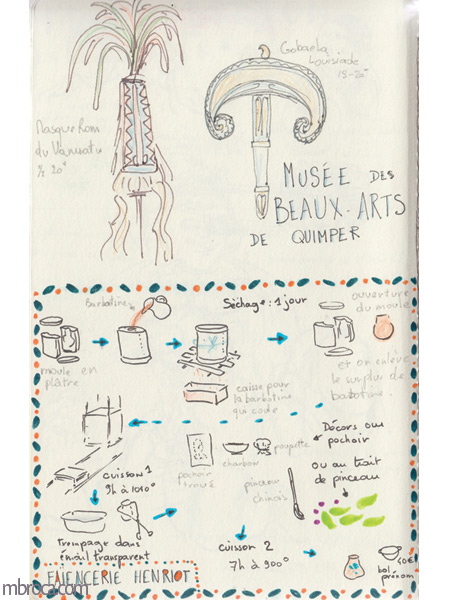 Gobaela
Louisiade
19-20°
Masque Rom
du Vanuatu
½ 20°
MUSÉE DES
BEAUX-ARTS
DE QUIMPER
Barbotine
Sèchage : 1 jour
ouverture
du moule
moule en
plâtre
caisse pour
la barbotine
qui coule
et on enlève
le surplus de
barbotine.
Décors, au
pochoir
pochoir
troué
charbon
poupette
pinceau
chinois
ou au trait
de pinceau
cuisson 1
9h à 1010°
trempage dans
émail transparent
cuisson 2
7h à 900°
40€
bol
prénom
FAÏENCERIE HENRIOT
mbroca.com